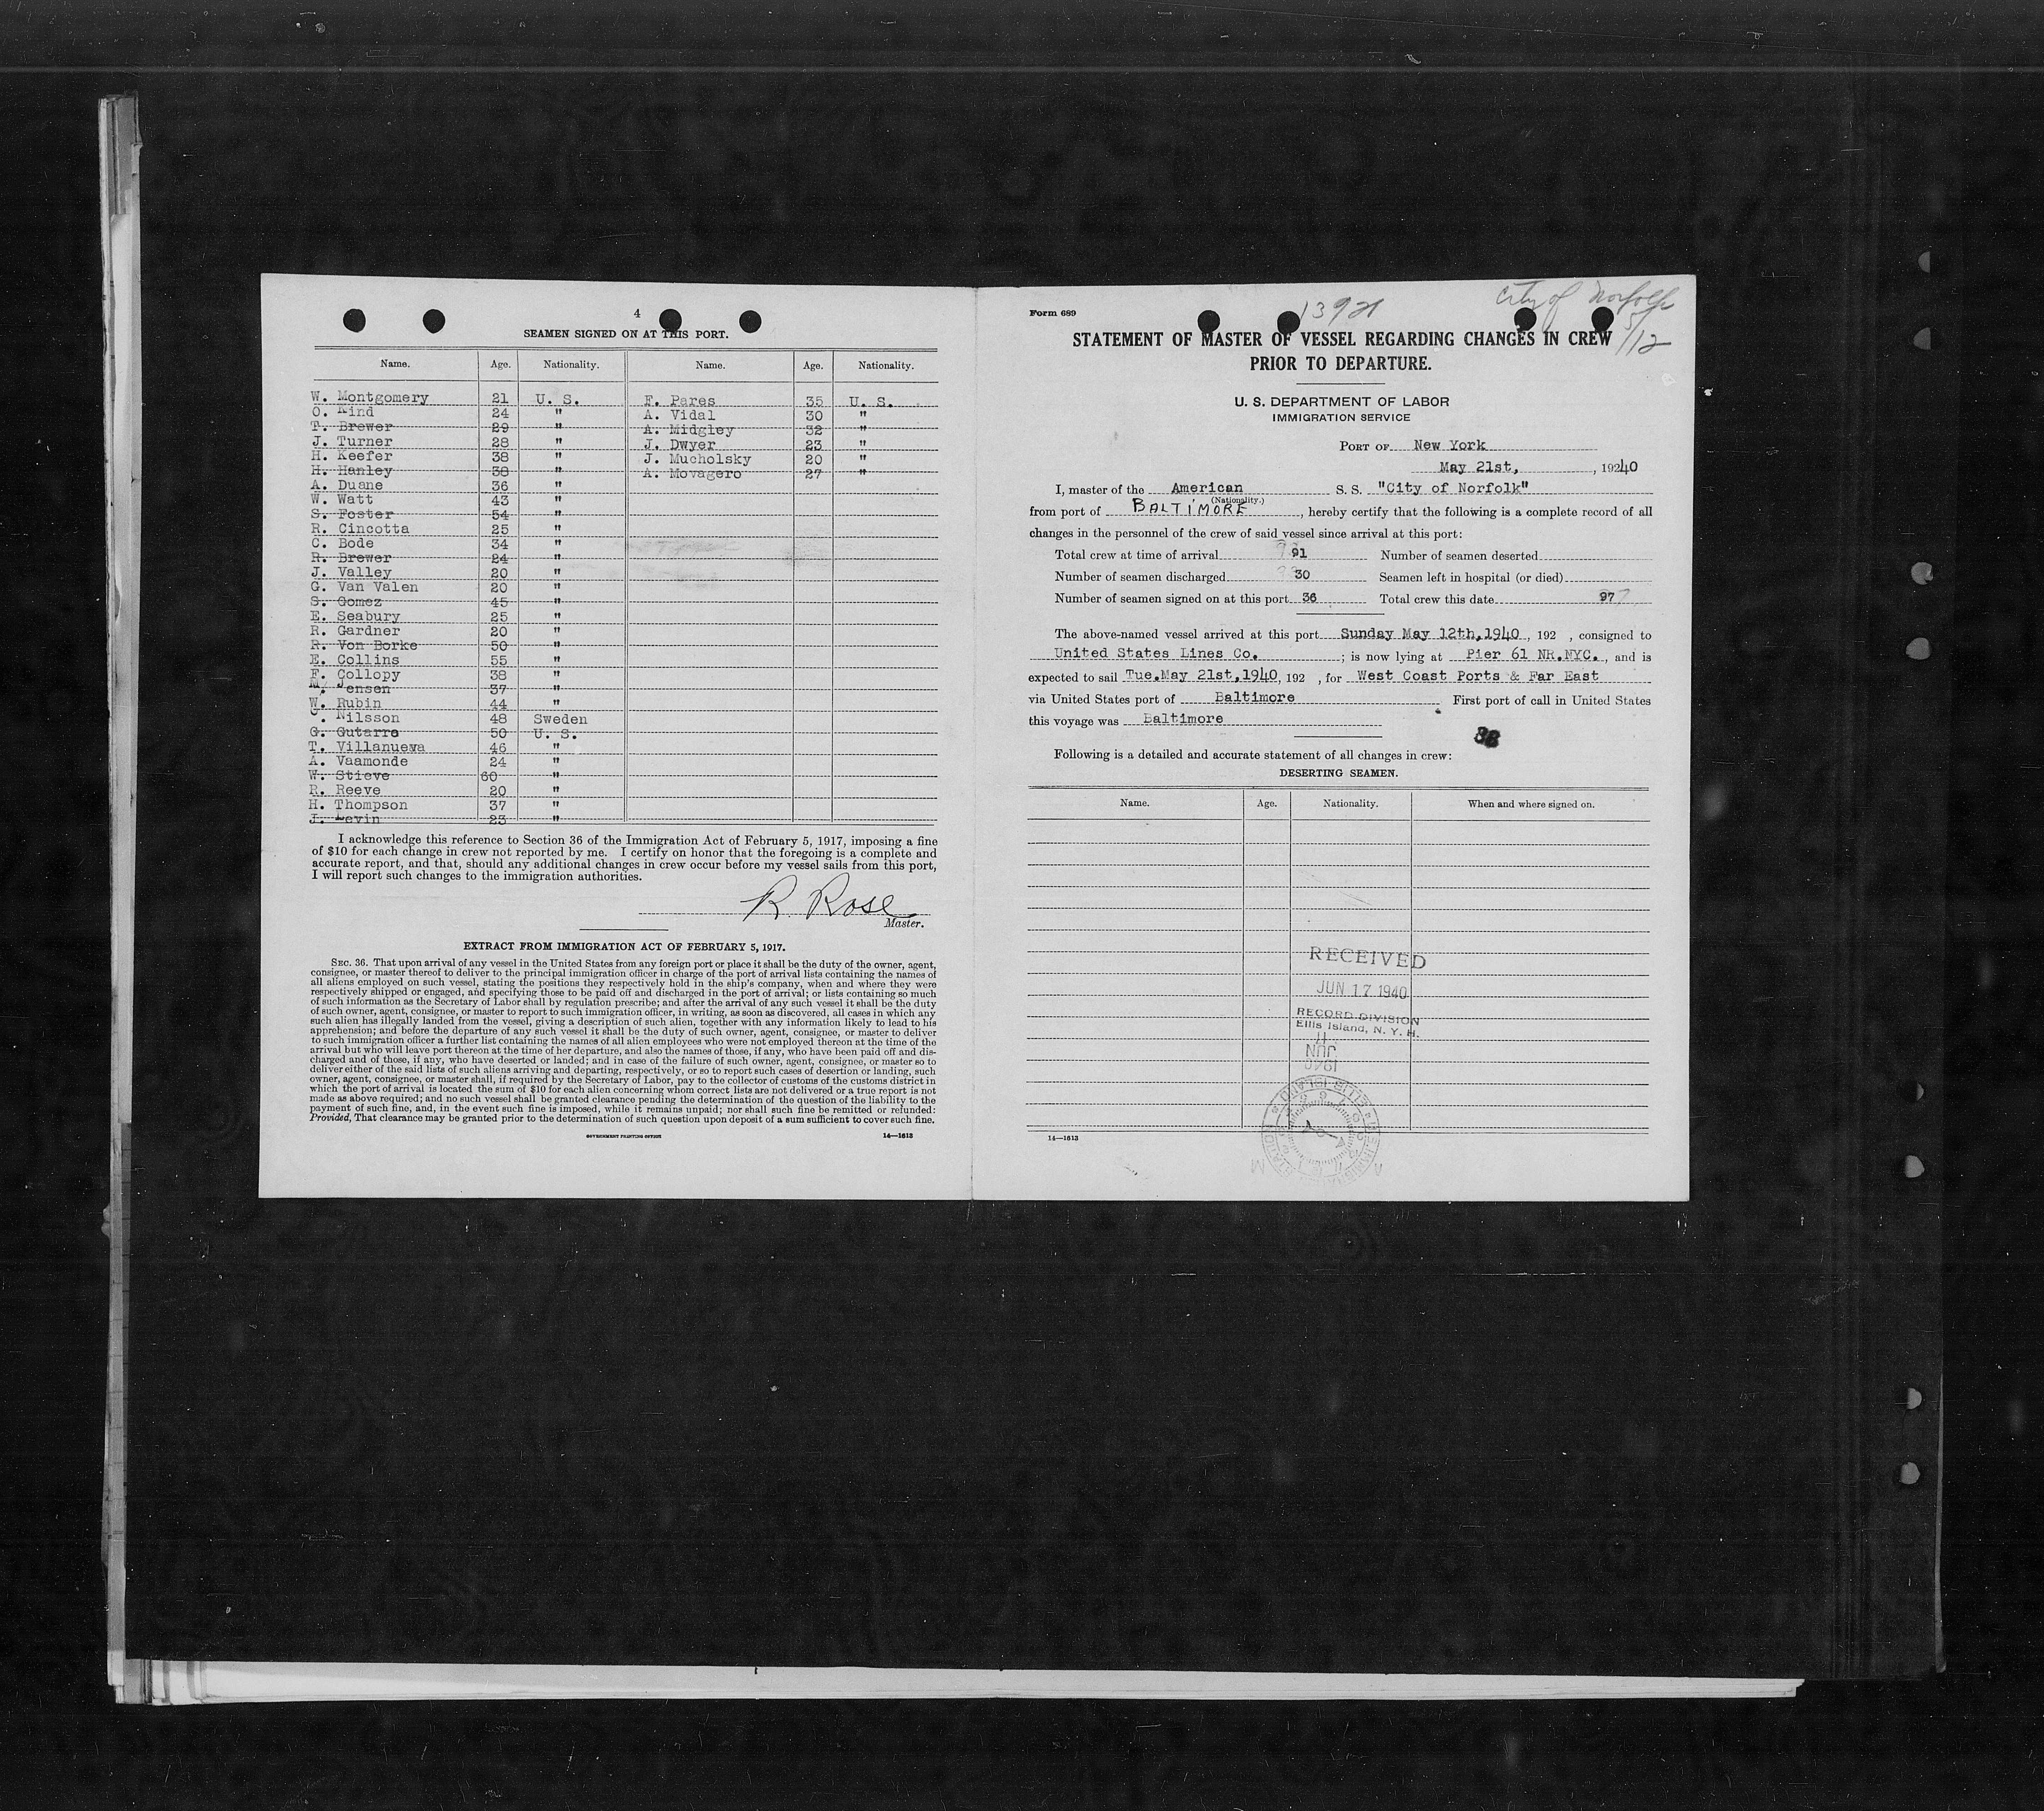 4
SEAMEN SIGNED ON AT THIS PORT.
Name. Age. Nationality. Name. Age. Nationality.
W. Montgomery 21 U. S. F. Pares 35 U. S.
O. Kind 24 " A. Vidal 30 "
T. Brewer 29 " A. Midgley 32 "
J. Turner 28 " J. Dwyer 23 "
H. Keefer 38 " J. Mucholsky 20 "
H. Hanley 38 " A. Movagero 27 "
A. Duane 36 "
W. Watt 43 "
S. Foster 54 "
R. Cincotta 25 "
C. Bode 34 "
R. Brewer 24 "
J. Valley 20 "
G. Van Valen 20 "
S. Gomez 45 "
E. Seabury 25 "
R. Gardner 20 "
R. Von Borke 50 "
E. Collins 55 "
F. Collopy 38 "
M. Jensen 37 "
W. Rubin 44 "
. Nilsson 48 Sweden
G. Gutarra 50 U. S.
T. Villanueva 46 "
A. Vaamonde 24 "
W. Stieve 60 "
R. Reeve 20 "
H. Thompson 37 "
J. Levin 23 "
I acknowledge this reference to Section 36 of the Immigration Act of February 5, 1917, imposing a fine
of $10 for each change in crew not reported by me. I certify on honor that the foregoing is a complete and
accurate report, and that, should any additional changes in crew occur before my vessel sails from this port,
I will report such changes to the immigration authorities.
R. Rose
Master.
EXTRACT FROM IMMIGRATION ACT OF FEBRUARY 5, 1917.
SEC. 36. That upon arrival of any vessel in the United States from any foreign port or place it shall be the duty of the owner, agent,
consignee, or master thereof to deliver to the principal immigration officer in charge of the port of arrival lists containing the names of
all aliens employed on such vessel, stating the positions they respectively hold in the ship's company, when and where they were
respectively shipped or engaged, and specifying those to be paid off and discharged in the port of arrival; or lists containing so much
of such information as the Secretary of Labor shall by regulation prescribe; and after the arrival of any such vessel it shall be the duty
of such owner, agent, consignee, or master to report to such immigration officer, in writing, as soon as discovered, all cases in which any
such alien has illegally landed from the vessel, giving a description of such alien, together with any information likely to lead to his
apprehension; and before the departure of any such vessel it shall be the duty of such owner, agent, consignee, or master to deliver
to such immigration officer a further list containing the names of all alien employees who were not employed thereon at the time of the
arrival but who will leave port thereon at the time of her departure, and also the names of those, if any, who have been paid off and dis-
charged and of those, if any, who have deserted or landed; and in case of the failure of such owner, agent, consignee, or master so to
deliver either of the said lists of such aliens arriving and departing, respectively, or so to report such cases of desertion or landing, such
owner, agent, consignee, or master shall, if required by the Secretary of Labor, pay to the collector of customs of the customs district in
which the port of arrival is located the sum of $10 for each alien concerning whom correct lists are not delivered or a true report is not
made as above required; and no such vessel shall be granted clearance pending the determination of the question of the liability to the
payment of such fine, and, in the event such fine is imposed, while it remains unpaid; nor shall such fine be remitted or refunded:
Provided, That clearance may be granted prior to the determination of such question upon deposit of a sum sufficient to cover such fine.
GOVERNMENT PRINTING OFFICE 14—1613
City of Norfolk
5/12
Form 689
STATEMENT OF MASTER OF VESSEL REGARDING CHANGES IN CREW
PRIOR TO DEPARTURE.
U. S. DEPARTMENT OF LABOR
IMMIGRATION SERVICE
PORT OF New York
May 21st, , 1940
I, master of the American S. S. "City of Norfolk"
(Nationality.)
from port of BALTIMORE, hereby certify that the following is a complete record of all
changes in the personnel of the crew of said vessel since arrival at this port:
Total crew at time of arrival 91 Number of seamen deserted
Number of seamen discharged 30 Seamen left in hospital (or died)
Number of seamen signed on at this port 36 Total crew this date 97
The above-named vessel arrived at this port Sunday May 12th,1940, 192 , consigned to
United States Lines Co. ; is now lying at Pier 61 NR.NYC., and is
expected to sail Tue.May 21st,1940, 192 , for West Coast Ports & Far East
via United States port of Baltimore First port of call in United States
this voyage was Baltimore
38
Following is a detailed and accurate statement of all changes in crew:
DESERTING SEAMEN.
Name. Age. Nationality. When and where signed on.
RECEIVED
JUN 17 1940
RECORD DIVISION
Ellis Island, N. Y. H.
JUN
1940
14—1613